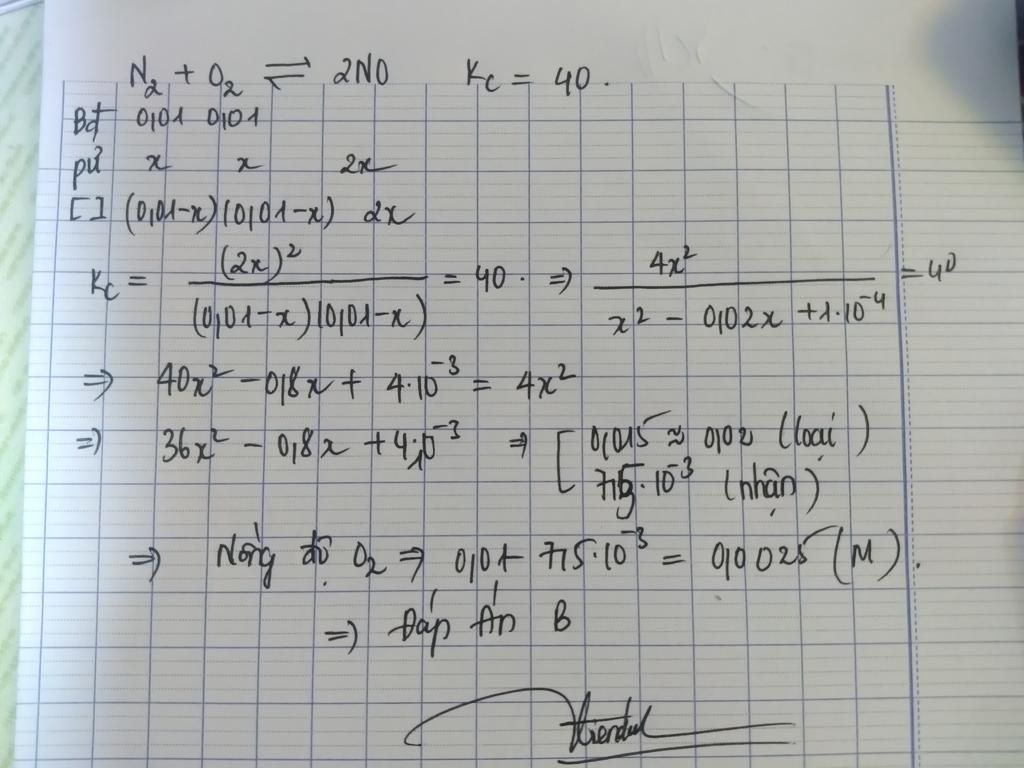 N₂ + O₂ ⇌ 2NO Kc = 40.
Bđ 0,01 0,01
pứ x x 2x
[ ] (0,01-x) (0,01-x) 2x
Kc = (2x)² / (0,01-x)(0,01-x) = 40. ⇒ 4x² / x² - 0,02x + 1.10⁻⁴ = 40
⇒ 40x² - 0,8x + 4.10⁻³ = 4x²
⇒ 36x² - 0,8x + 4.10⁻³ ⇒ [ 0,015 ≈ 0,02 (loại)
7,5.10⁻³ (nhận)
⇒ Nồng độ O₂ ⇒ 0,01 - 7,5.10⁻³ = 0,0025 (M).
⇒ Đáp Án B